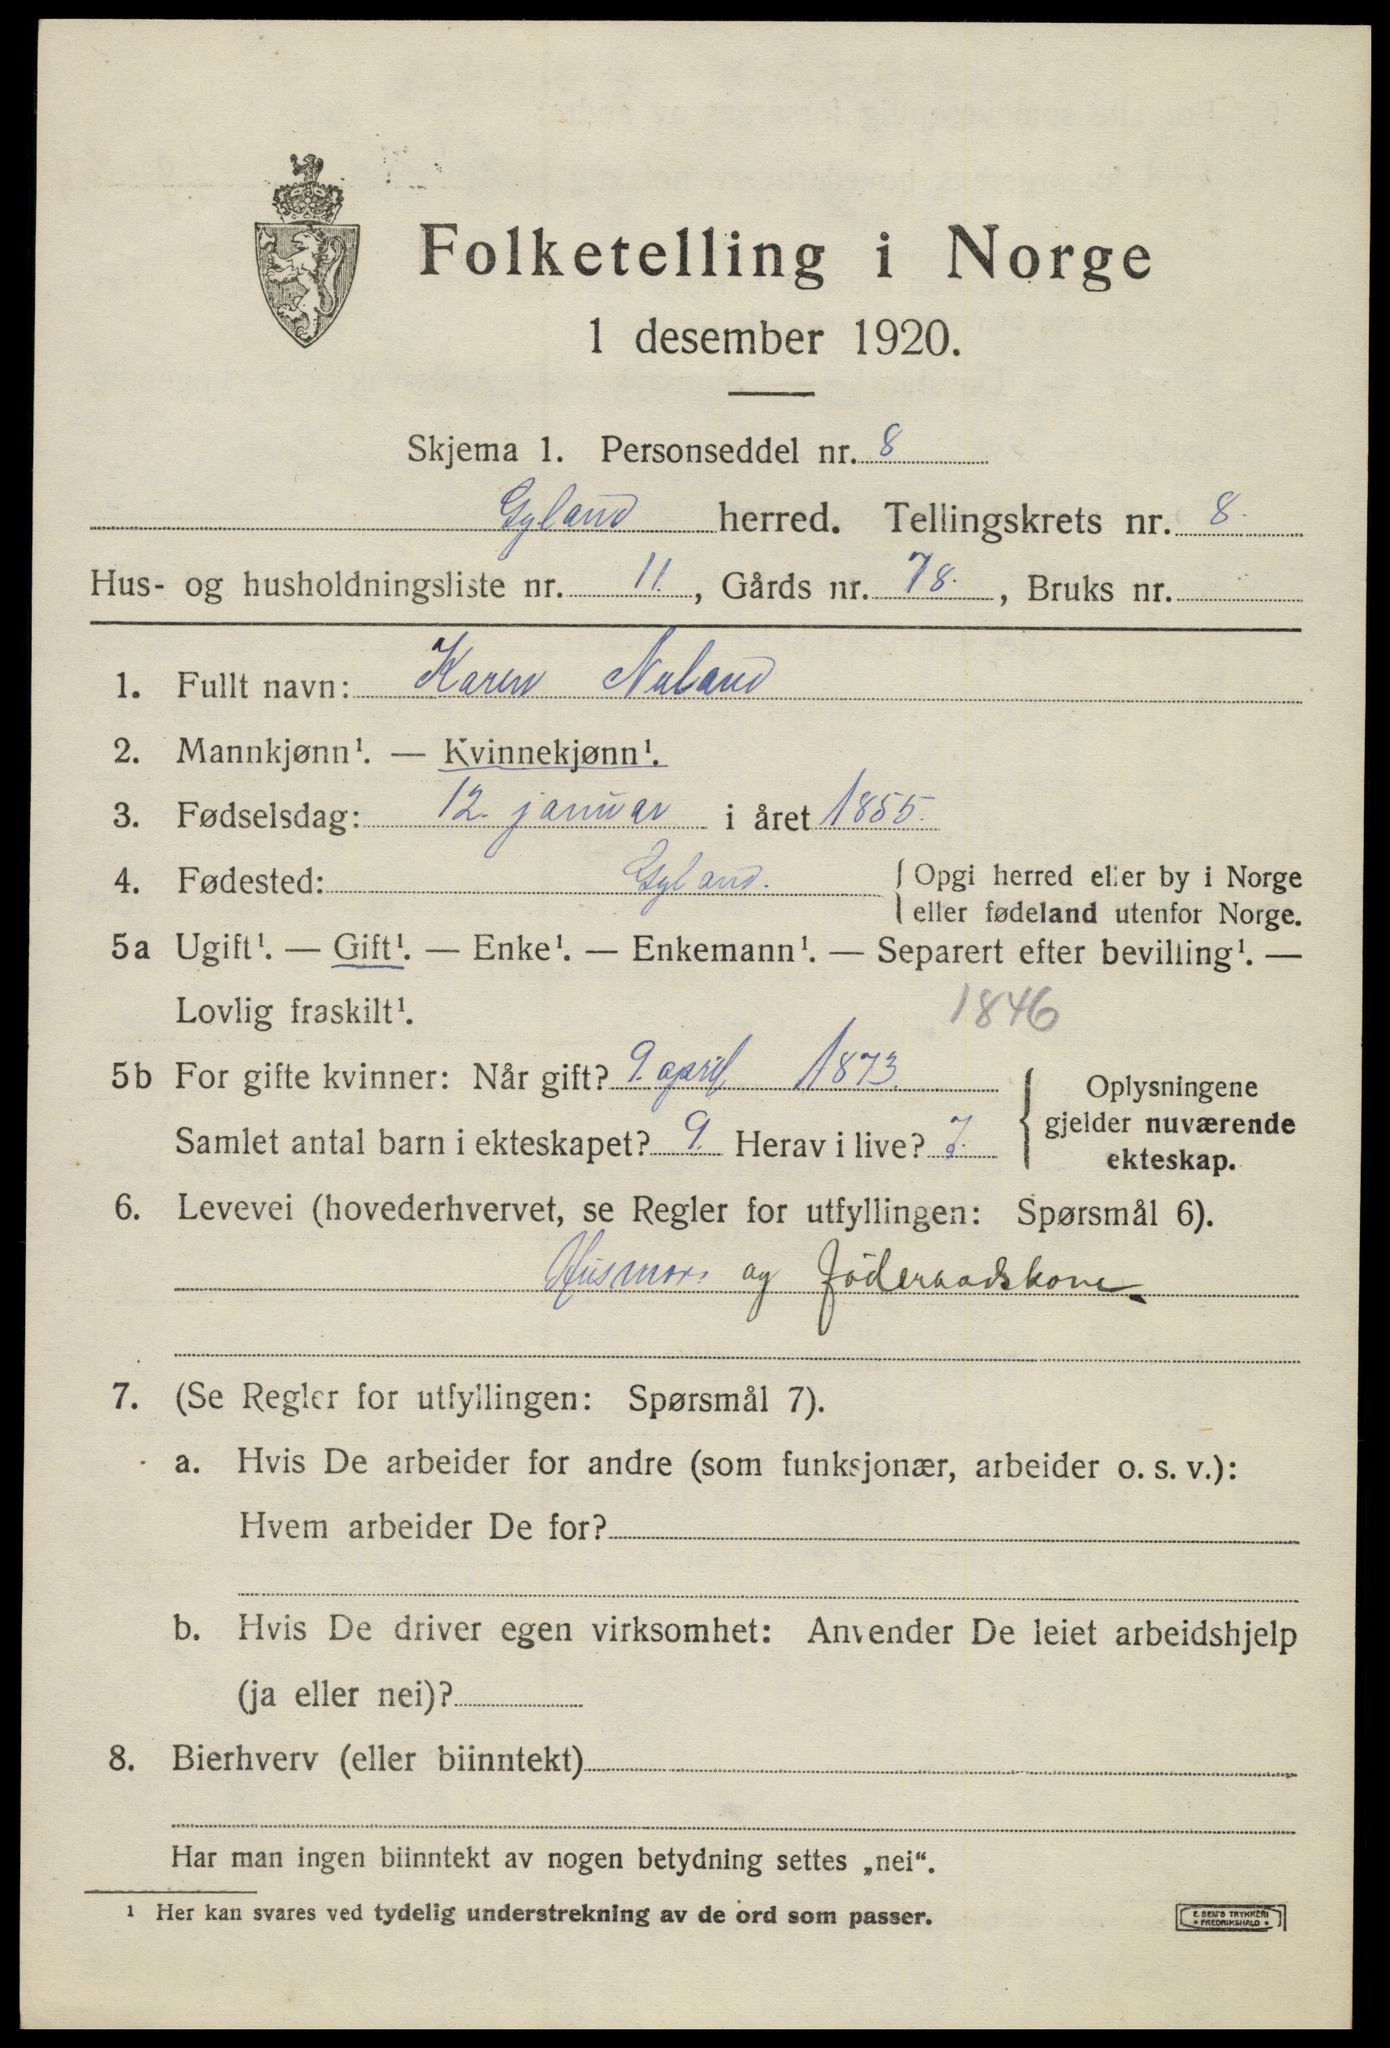 Folketelling i Norge
1 desember 1920.
Skjema 1. Personseddel nr. 8
Gyland herred. Tellingskrets nr. 8.
Hus- og husholdningsliste nr. 11., Gårds nr. 78., Bruks nr.
1. Fullt navn: Karen Nuland
2. Mannkjønn¹. — Kvinnekjønn¹.
3. Fødselsdag: 12. januar i året 1855.
4. Fødested: Gyland. Opgi herred eller by i Norge
eller fødeland utenfor Norge.
5a Ugift¹. — Gift¹. — Enke¹. — Enkemann¹. — Separert efter bevilling¹. —
Lovlig fraskilt¹.
1846
5b For gifte kvinner: Når gift? 9. april 1873. Oplysningene
gjelder nuværende
ekteskap.
Samlet antal barn i ekteskapet? 9. Herav i live? 7.
6. Levevei (hovederhvervet, se Regler for utfyllingen: Spørsmål 6).
Husmor. og föderaadskone
7. (Se Regler for utfyllingen: Spørsmål 7).
a. Hvis De arbeider for andre (som funksjonær, arbeider o. s. v.):
Hvem arbeider De for?
b. Hvis De driver egen virksomhet: Anvender De leiet arbeidshjelp
(ja eller nei)?
8. Bierhverv (eller biinntekt)
Har man ingen biinntekt av nogen betydning settes „nei“.
¹ Her kan svares ved tydelig understrekning av de ord som passer.
E. SEM'S TRYKKERI
• FREDRIKSHALD •